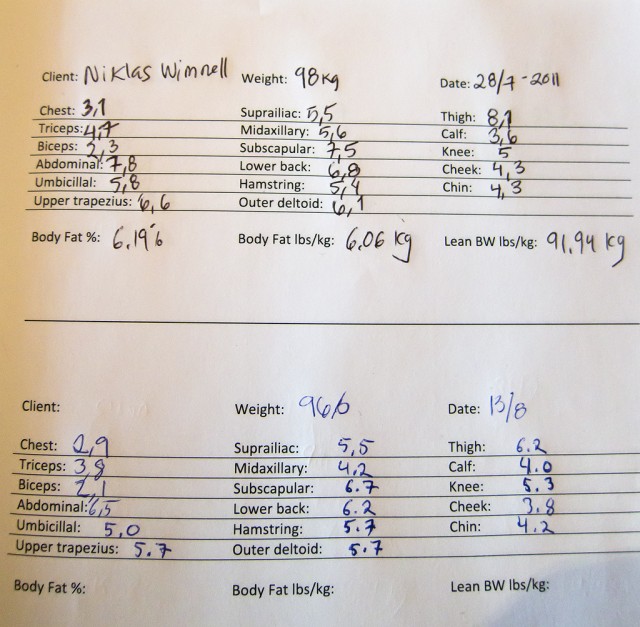 Client: Niklas Wimnell Weight: 98kg Date: 28/7-2011
Chest: 3,1 Suprailiac: 5,5 Thigh: 8,1
Triceps: 4,7 Midaxillary: 5,6 Calf: 3,6
Biceps: 2,3 Subscapular: 7,5 Knee: 5
Abdominal: 7,8 Lower back: 6,8 Cheek: 4,3
Umbicillal: 5,8 Hamstring: 5,4 Chin: 4,3
Upper trapezius: 6,6 Outer deltoid: 6,1
Body Fat %: 6.19% Body Fat lbs/kg: 6.06 kg Lean BW lbs/kg: 91.94 kg
Client: Weight: Date: 13/8
Chest: 2,9 Suprailiac: 5,5 Thigh: 6.2
Triceps: 3,8 Midaxillary: 4,2 Calf: 4.0
Biceps: 2,1 Subscapular: 6.7 Knee: 5.3
Abdominal: 6,5 Lower back: 6.2 Cheek: 3.8
Umbicillal: 5,0 Hamstring: 5.7 Chin: 4.2
Upper trapezius: 5.7 Outer deltoid: 5.7
Body Fat %: Body Fat lbs/kg: Lean BW lbs/kg: